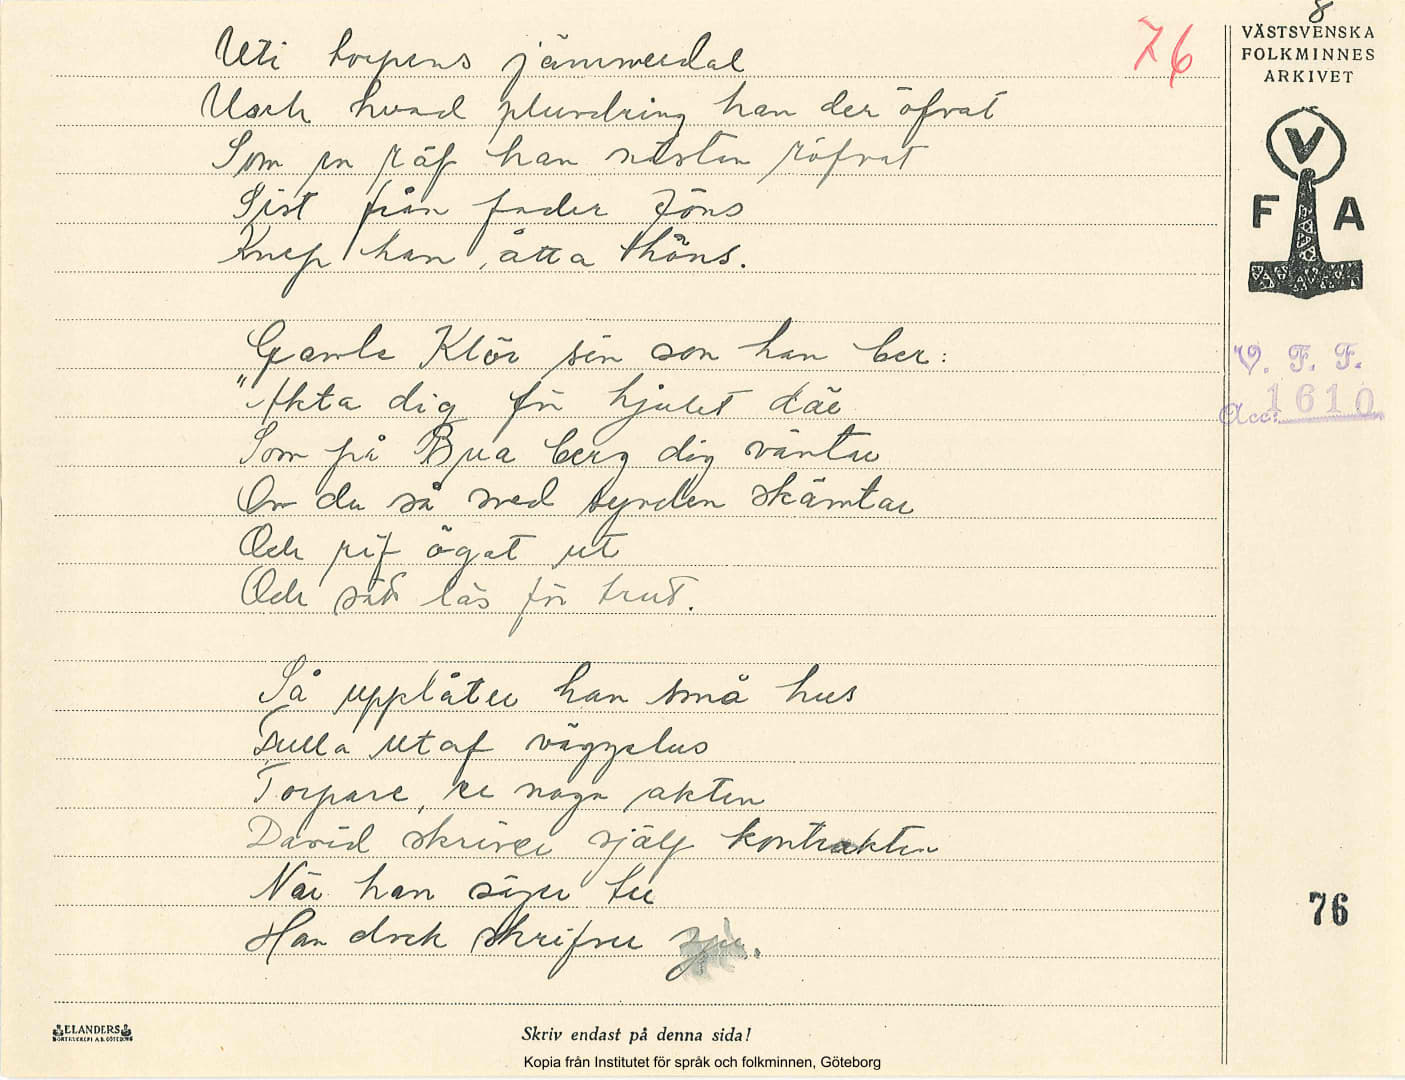 8
76
VÄSTSVENSKA
FOLKMINNES
ARKIVET
V
F A
V. F. F.
Acc: 1610
Uti torpens jämmerdal
Usch hvad plundring han der öfvat
Som en räf han nästan röfvat
Sist från fader Jöns
Knep han åtta höns.
Gamle Klör sin son han ber:
"Akta dig för hjulet där
Som på Bua berg dig väntar
Om du så med synden skämtar
Och rif ögat ut
Och sätt lås för trut.
Så upplåter han små hus
Fulla utaf vägglus
Torpare, ge noga akten
David skriver själf kontrakten
När han säger tre
Han dock skrifver
76
ELANDERS
BOKTRYCKERI A.B. GÖTEBORG
Skriv endast på denna sida!
Kopia från Institutet för språk och folkminnen, Göteborg